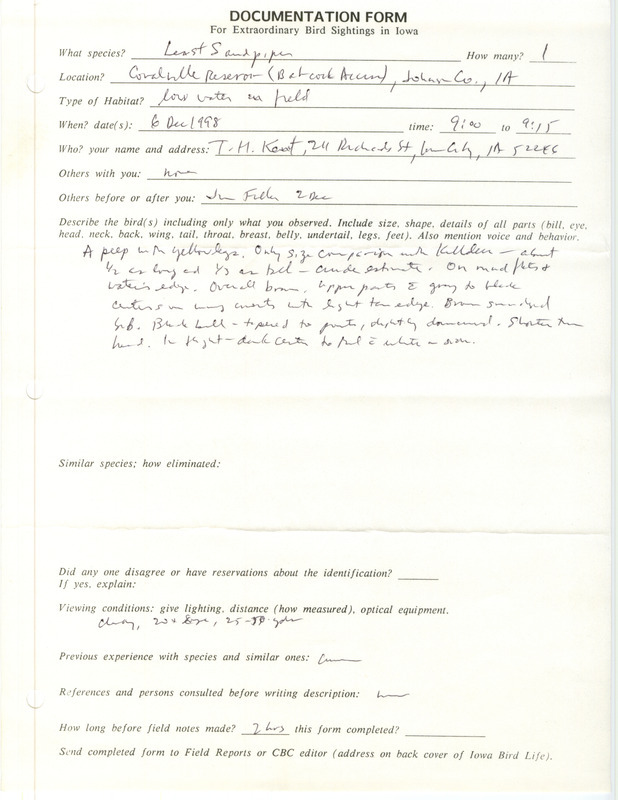 DOCUMENTATION FORM
For Extraordinary Bird Sightings in Iowa
What species? Least Sandpiper How many? 1
Location? Coralville Reservoir (Babcock Access), Johnson Co., IA
Type of Habitat? low water in field
When? date(s): 6 Dec 1998 time: 9:00 to 9:15
Who? your name and address: T.H. Kent, 211 Richards St, Iowa City, IA 52246
Others with you? none
Others before or after you: Jim Fuller 2 Dec
Describe the bird(s) including only what you observed. Include size, shape, details of all parts (bill, eye,
head, neck, back, wing, tail, throat, breast, belly, undertail, legs, feet). Also mention voice and behavior.
A peep with yellow legs. Only size comparison with Killdeer - about
1/2 as long and 1/3 as - crude estimate. On mud flats &
water's edge. Overall brown. Upper parts gray to black
centers on wing coverts with light tan edge. Brown smudged
bib. Black bill - tapered to point, slightly downcurved. Shorter than
head. In flight - dark center to tail c̄ white on sides.
Similar species; how eliminated:
Did any one disagree or have reservations about the identification?
If yes, explain:
Viewing conditions: give lighting, distance (how measured), optical equipment.
cloudy, 20x scope, 25-50 yards
Previous experience with species and similar ones:
References and persons consulted before writing description:
How long before field notes made? 2 hrs this form completed?
Send completed form to Field Reports or CBC editor (address on back cover of Iowa Bird Life).